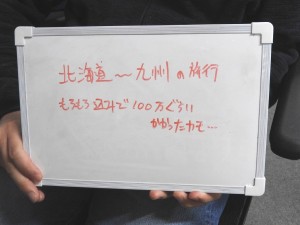 北海道〜九州の旅行
もろもろ込みで100万ぐらい
かかったカモ…